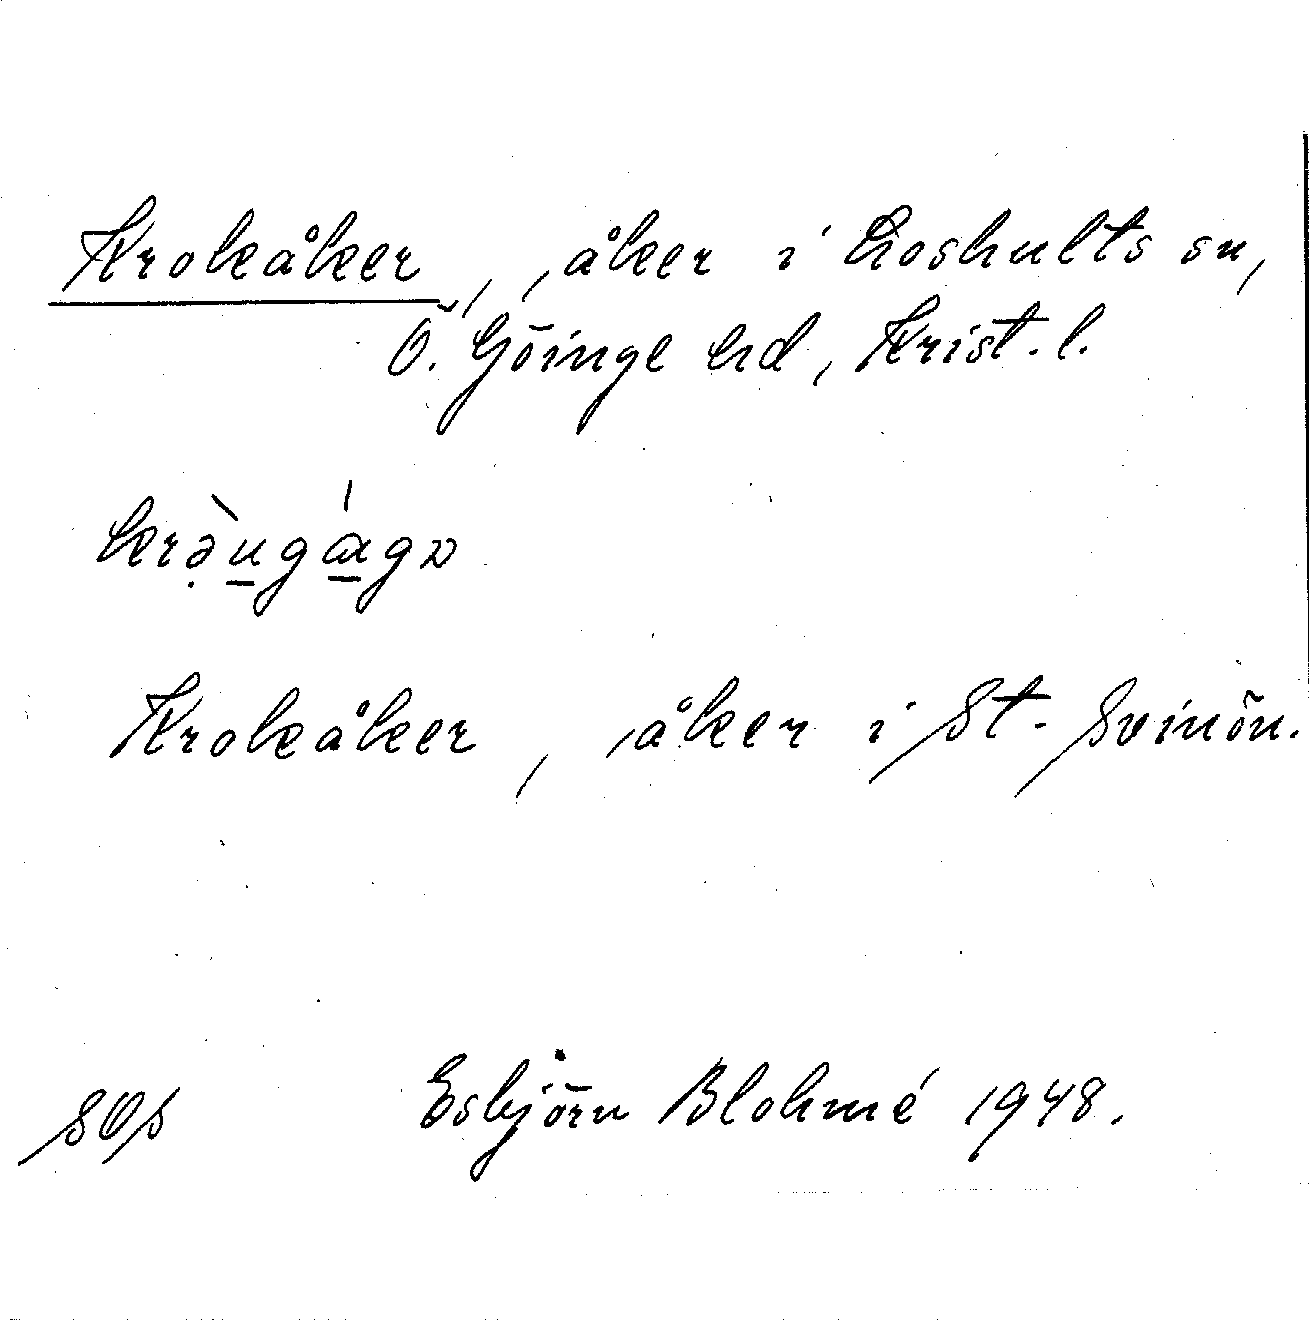 Krokåker, åker i Loshults sn,
Ö. Göinge hd, Krist. l.
krə̣̀u̱gá̱gɒ
Krokåker, åker i St. Svinön.
SOS Esbjörn Blohmé 1948.